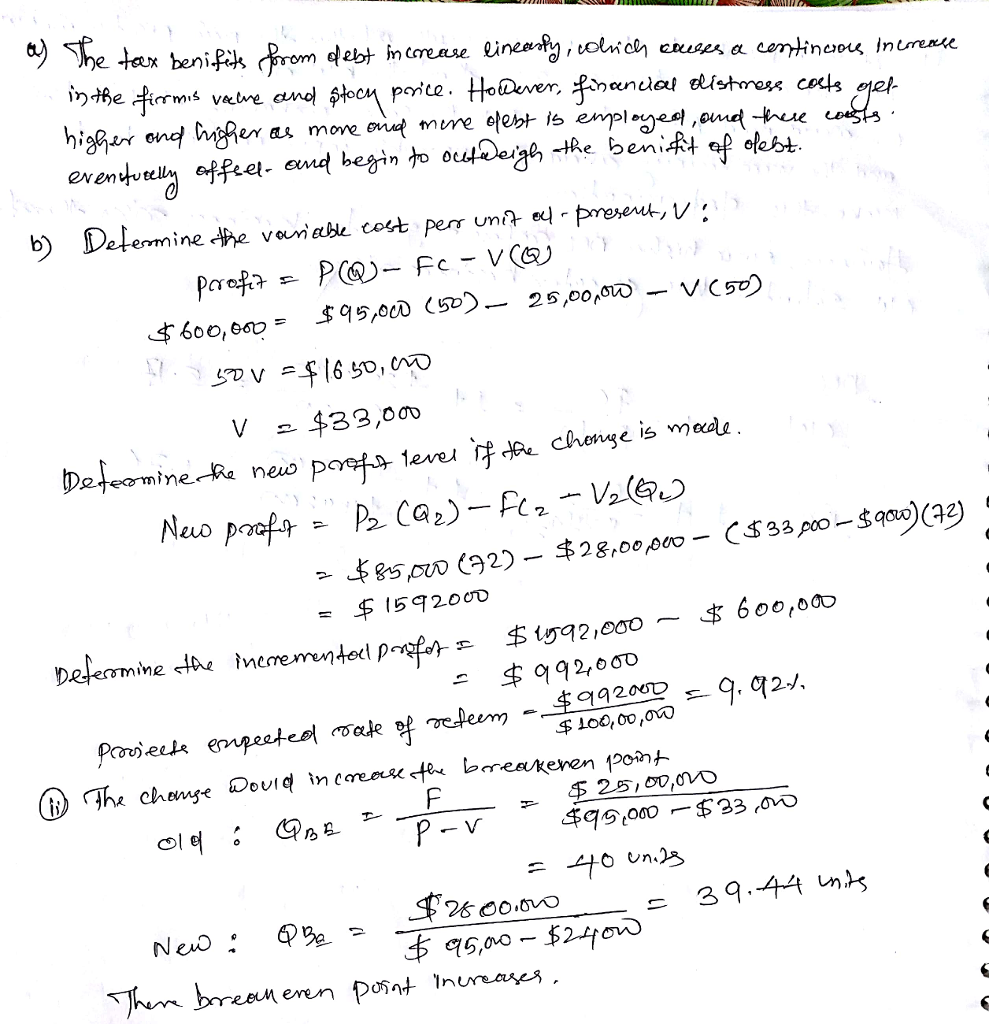 a) The tax benifits from debt increase linearly, which causes a continuous increase
in the firm's value and stock price. However, financial distress costs get
higher and higher as more and more debt is employed, and these costs
eventually offset and begin to outweigh the benifit of debt.
b) Determine the variable cost per unit at present, V :
Profit = P(Q) - FC - V(Q)
$600,000 = $95,000 (50) - 25,00,000 - V(50)
50V = $1650,000
V = $33,000
Determine the new profit level if the change is made.
New profit = P2 (Q2) - FC2 - V2(Q2)
= $85,000 (72) - $28,00,000 - ($33,000 - $9000)(72)
= $1592000
Determine the incremental profit = $1592,000 - $600,000
= $992,000
Projects expected rate of return = $992000 / $100,00,000 = 9.92%
(ii) The change would increase the breakeven point
Old : QBE = F / P-V = $25,00,000 / $95,000 - $33,000
= 40 units
New : QBE = $2800,000 / $95,000 - $24000 = 39.44 units
There breakeven point increases.